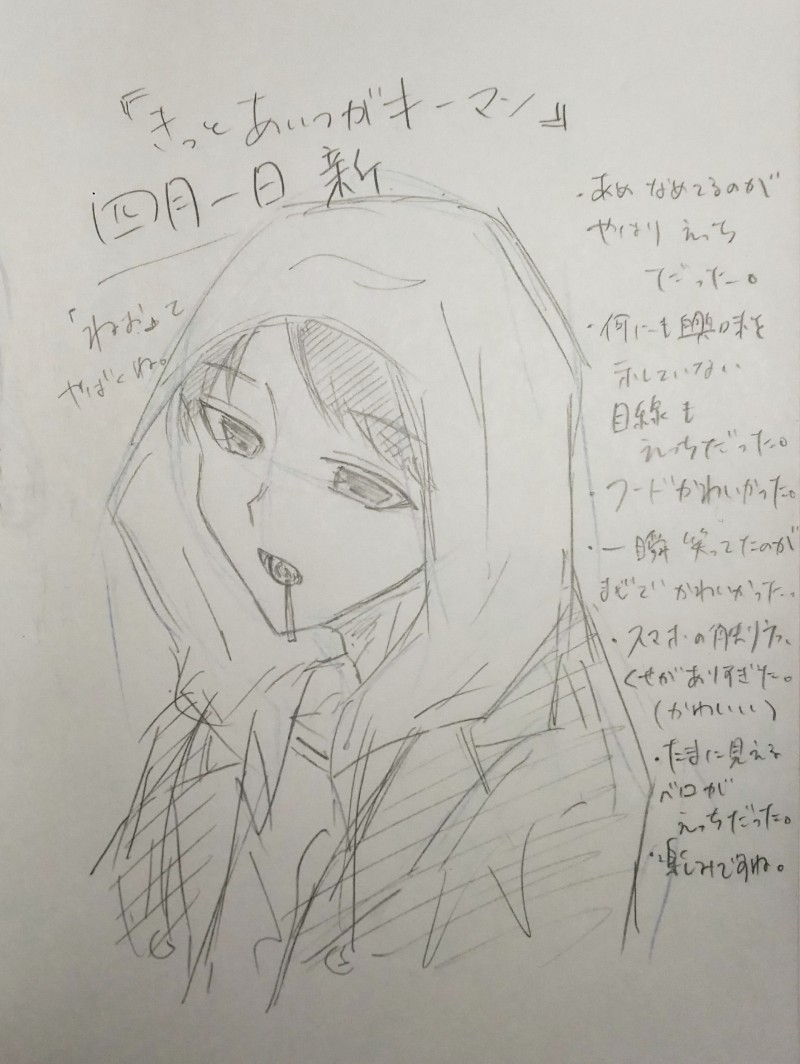 『きっとあいつがキーマン』
四月一日 新
「ねお」って
やばくね。
・あめ なめてるのが
やはり えっち
だった。
・何にも興味を
示していない
目線も
えっちだった。
・フードかわいかった。
・一瞬 笑ってたのが
まじでかわいかった。
・スマホの触り方、
くせがありすぎた。
(かわいい)
・たまに見える
ベロが
えっちだった。
・楽しみですね。